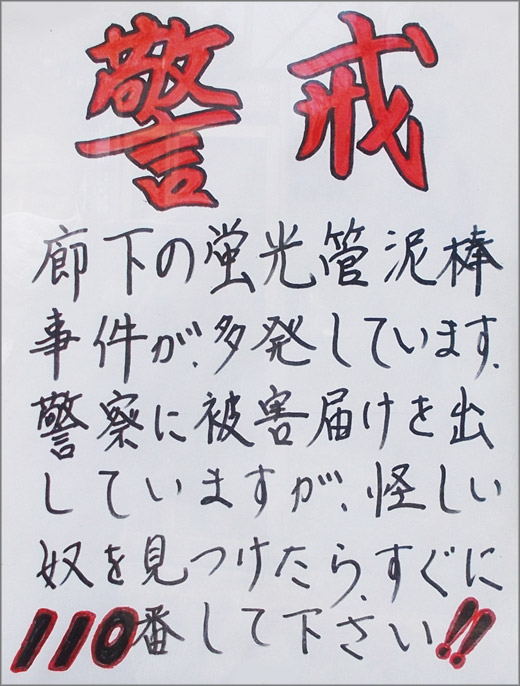 警戒
廊下の蛍光管泥棒
事件が、多発しています。
警察に被害届けを出
していますが、怪しい
奴を見つけたら、すぐに
110番して下さい!!